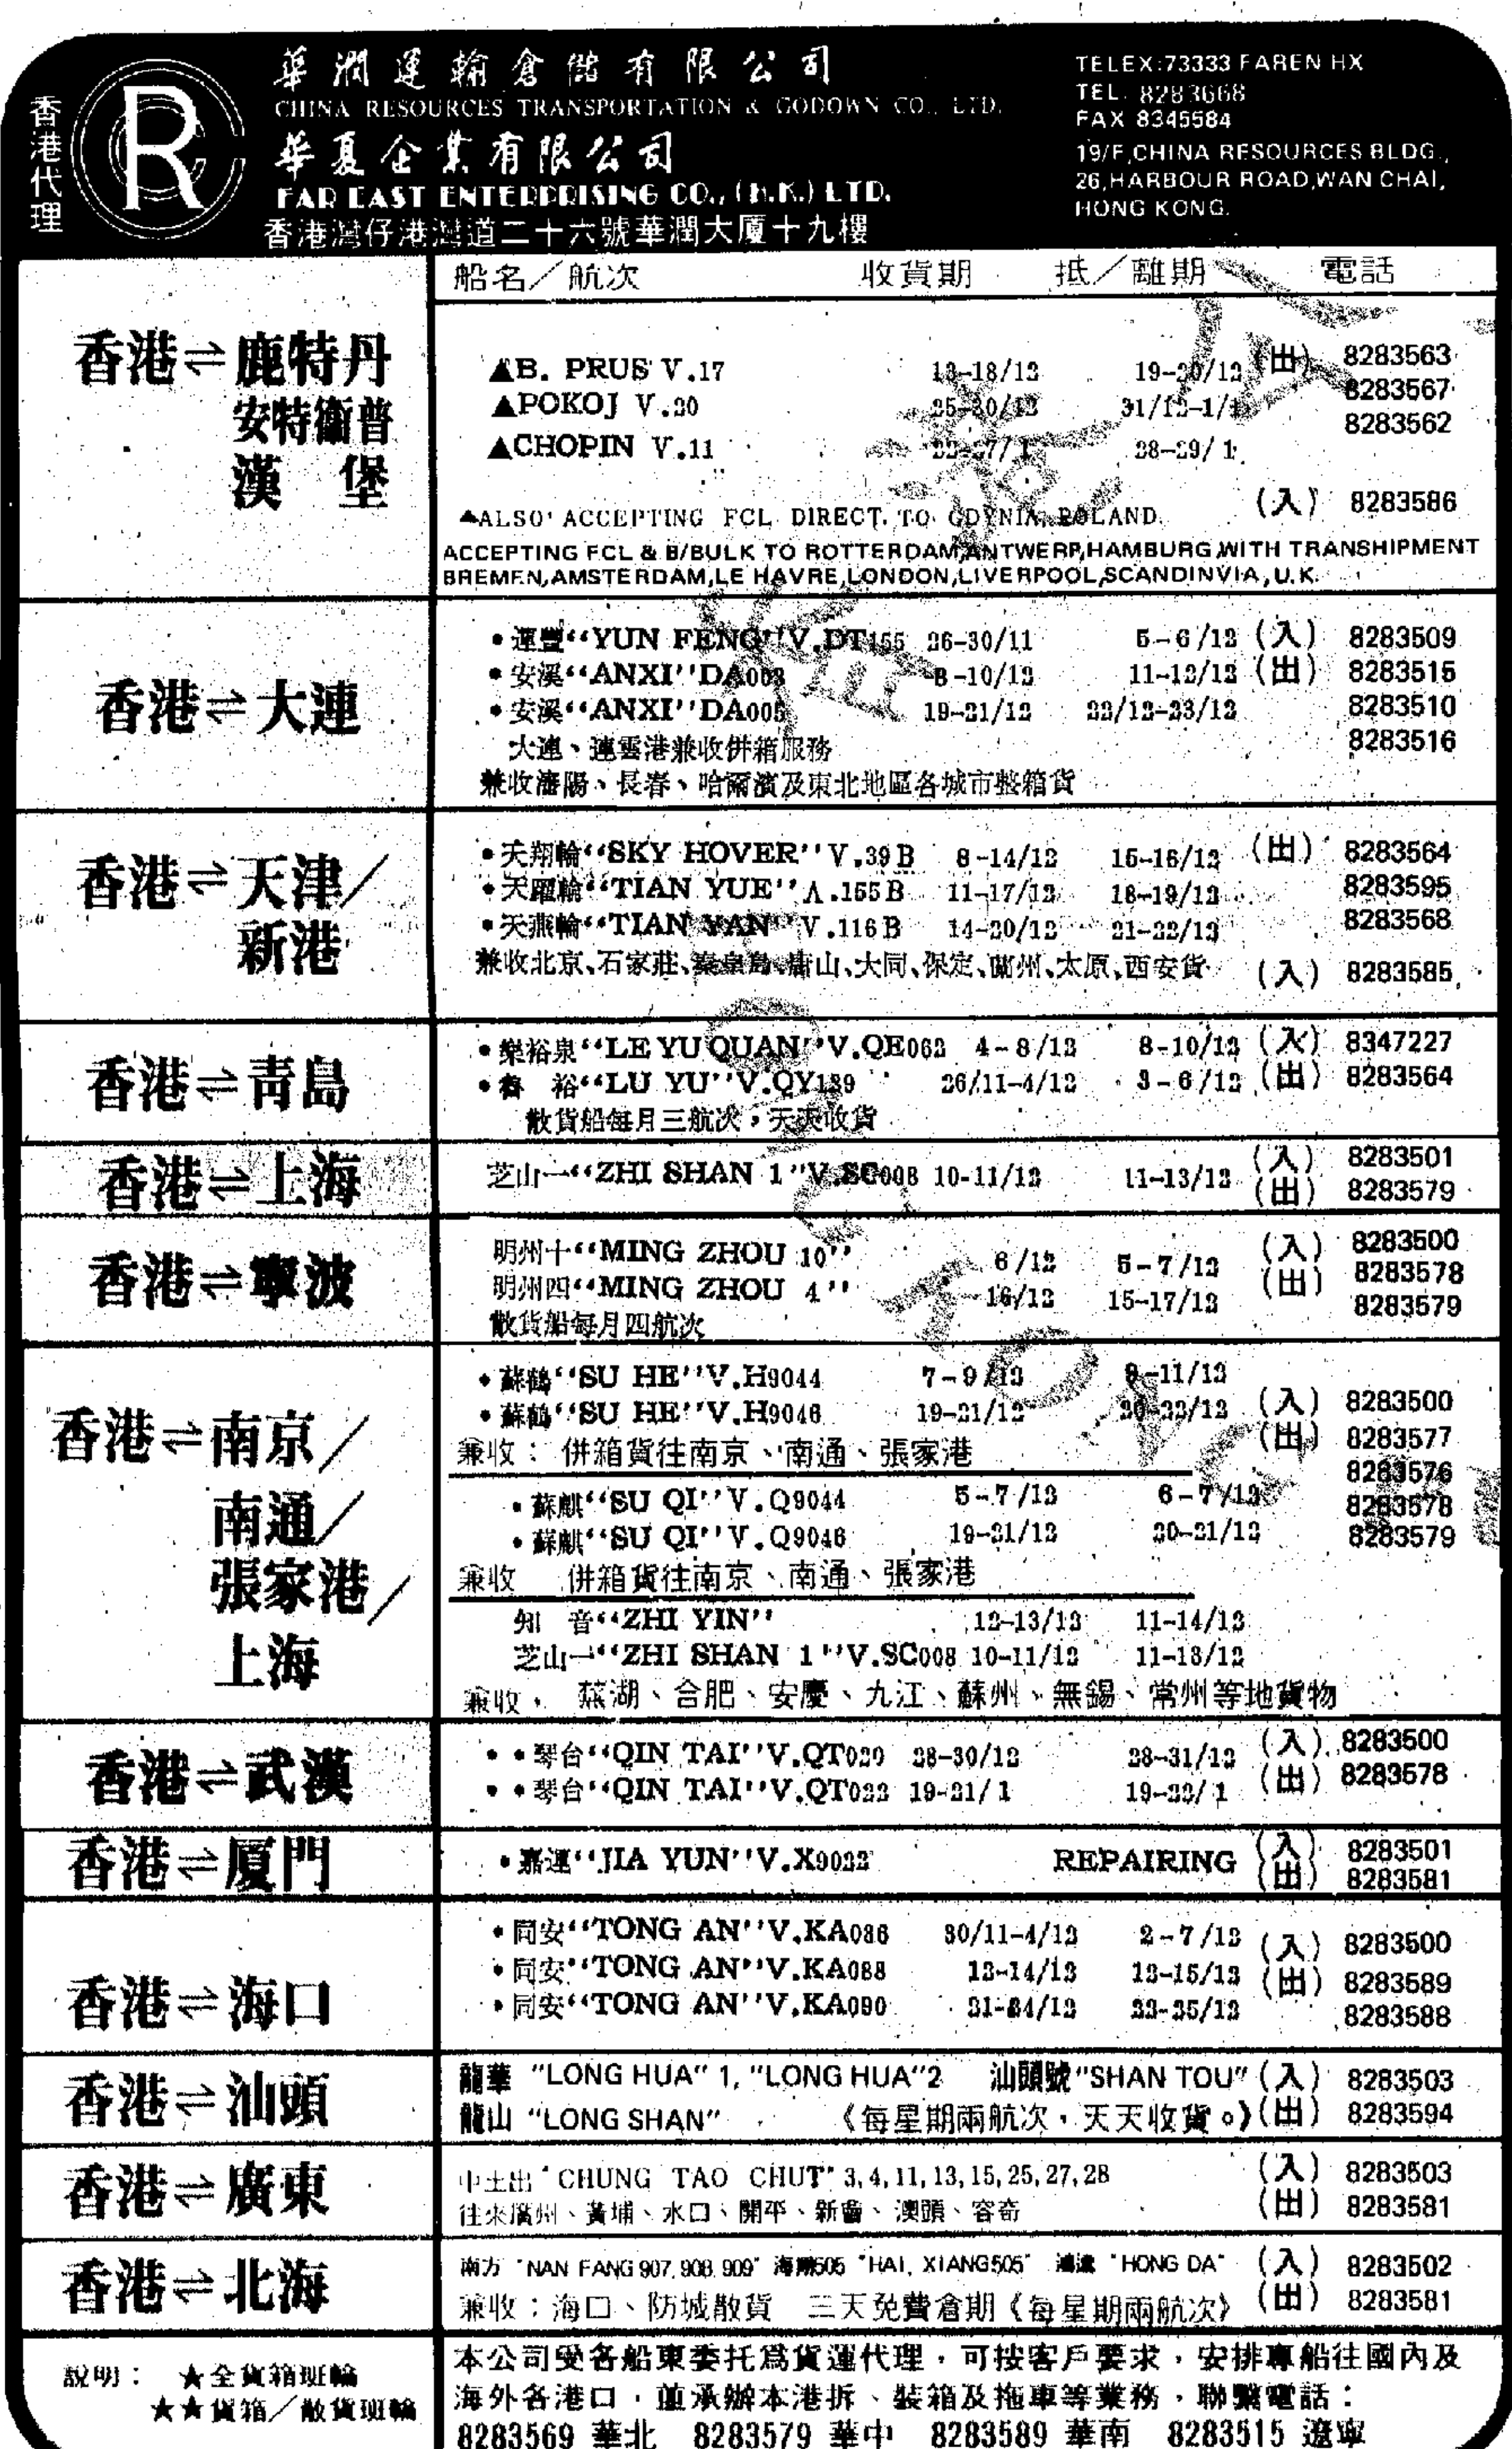 香港代理
華潤運輸倉儲有限公司
CHINA RESOURCES TRANSPORTATION & GODOWN CO., LTD.
華夏企業有限公司
FAR EAST ENTERPRISING CO., (H.K.) LTD.
香港灣仔港灣道二十六號華潤大廈十九樓
TELEX:73333 FAREN HX
TEL. 8283668
FAX 8345584
19/F,CHINA RESOURCES BLDG.,
26,HARBOUR ROAD,WAN CHAI,
HONG KONG.
船名／航次 收貨期 抵／離期 電話
香港⇌鹿特丹
安特衞普
漢堡
▲B. PRUS V.17 13-18/12 19-20/12 (出) 8283563
8283567
▲POKOJ V.20 25-30/12 31/12-1/1
8283562
▲CHOPIN V.11 28-29/1
(入) 8283586
▲ALSO ACCEPTING FCL DIRECT TO GDYNIA, POLAND.
ACCEPTING FCL & B/BULK TO ROTTERDAM,ANTWERP,HAMBURG,WITH TRANSHIPMENT
BREMEN,AMSTERDAM,LE HAVRE,LONDON,LIVERPOOL,SCANDINVIA,U.K.
香港⇌大連
•運豐“YUN FENG”V.DT155 26-30/11 5-6/12 (入) 8283509
•安溪“ANXI”DA003 8-10/12 11-12/12 (出) 8283515
•安溪“ANXI”DA005 19-21/12 22/12-23/12 8283510
8283516
大連、連雲港兼收併箱服務
兼收瀋陽、長春、哈爾濱及東北地區各城市整箱貨
香港⇌天津／
新港
•天翔輪“SKY HOVER”V.39B 8-14/12 15-16/12 (出) 8283564
•天躍輪“TIAN YUE”V.155B 11-17/12 18-19/12 8283595
•天燕輪“TIAN YAN”V.116B 14-20/12 21-22/12 8283568
兼收北京、石家莊、秦皇島、唐山、大同、保定、蘭州、太原、西安貨 (入) 8283585
香港⇌青島
•樂裕泉“LE YU QUAN”V.QE062 4-8/12 8-10/12 (入) 8347227
•魯裕“LU YU”V.QY139 26/11-4/12 3-6/12 (出) 8283564
散貨船每月三航次，天天收貨
香港⇌上海
芝山一“ZHI SHAN 1”V.SC008 10-11/12 11-13/12 (入) 8283501
(出) 8283579
香港⇌寧波
明州十“MING ZHOU 10” 6/12 5-7/12 (入) 8283500
明州四“MING ZHOU 4” 16/12 15-17/12 (出) 8283578
8283579
散貨船每月四航次
香港⇌南京／
南通／
張家港／
上海
•蘇鶴“SU HE”V.H9044 7-9/12 9-11/12
•蘇鶴“SU HE”V.H9046 19-21/12 20-22/12 (入) 8283500
兼收：併箱貨往南京、南通、張家港 (出) 8283577
8283576
•蘇麒“SU QI”V.Q9044 5-7/12 6-7/12 8283578
•蘇麒“SU QI”V.Q9046 19-21/12 20-21/12 8283579
兼收 併箱貨往南京、南通、張家港
知音“ZHI YIN” 12-13/12 11-14/12
芝山一“ZHI SHAN 1”V.SC008 10-11/12 11-13/12
兼收，蕪湖、合肥、安慶、九江、蘇州、無錫、常州等地貨物
香港⇌武漢
••琴台“QIN TAI”V.QT020 28-30/12 28-31/12 (入) 8283500
••琴台“QIN TAI”V.QT022 19-21/1 19-22/1 (出) 8283578
香港⇌厦門
•嘉運“JIA YUN”V.X9022 REPAIRING (入) 8283501
(出) 8283581
香港⇌海口
•同安“TONG AN”V.KA086 30/11-4/12 2-7/12 (入) 8283500
•同安“TONG AN”V.KA088 12-14/12 12-15/12 (出) 8283589
•同安“TONG AN”V.KA090 21-24/12 22-25/12 8283588
香港⇌汕頭
龍華 “LONG HUA” 1, “LONG HUA”2 汕頭號“SHAN TOU” (入) 8283503
龍山 “LONG SHAN” 《每星期兩航次，天天收貨。》(出) 8283594
香港⇌廣東
中土出“CHUNG TAO CHUT” 3,4,11,13,15,25,27,28 (入) 8283503
往來廣州、黃埔、水口、開平、新會、澳頭、容奇 (出) 8283581
香港⇌北海
南方“NAN FANG 907, 908, 909” 505“HAI, XIANG505” “HONG DA” (入) 8283502
兼收：海口、防城散貨 三天免費倉期《每星期兩航次》 (出) 8283581
說明：★全貨箱班輪
★★貨箱／散貨班輪
本公司受各船東委托爲貨運代理，可按客戶要求，安排專船往國內及
海外各港口，並承辦本港拆、裝箱及拖車等業務，聯繫電話：
8283569 華北 8283579 華中 8283589 華南 8283515 遼寧